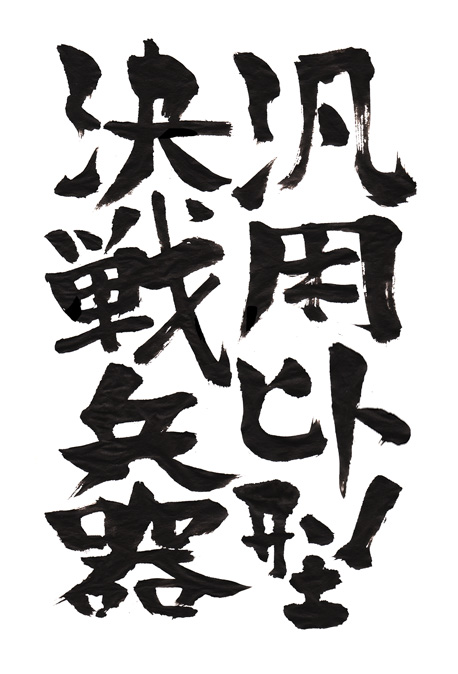 汎用ヒト型
決戦兵器